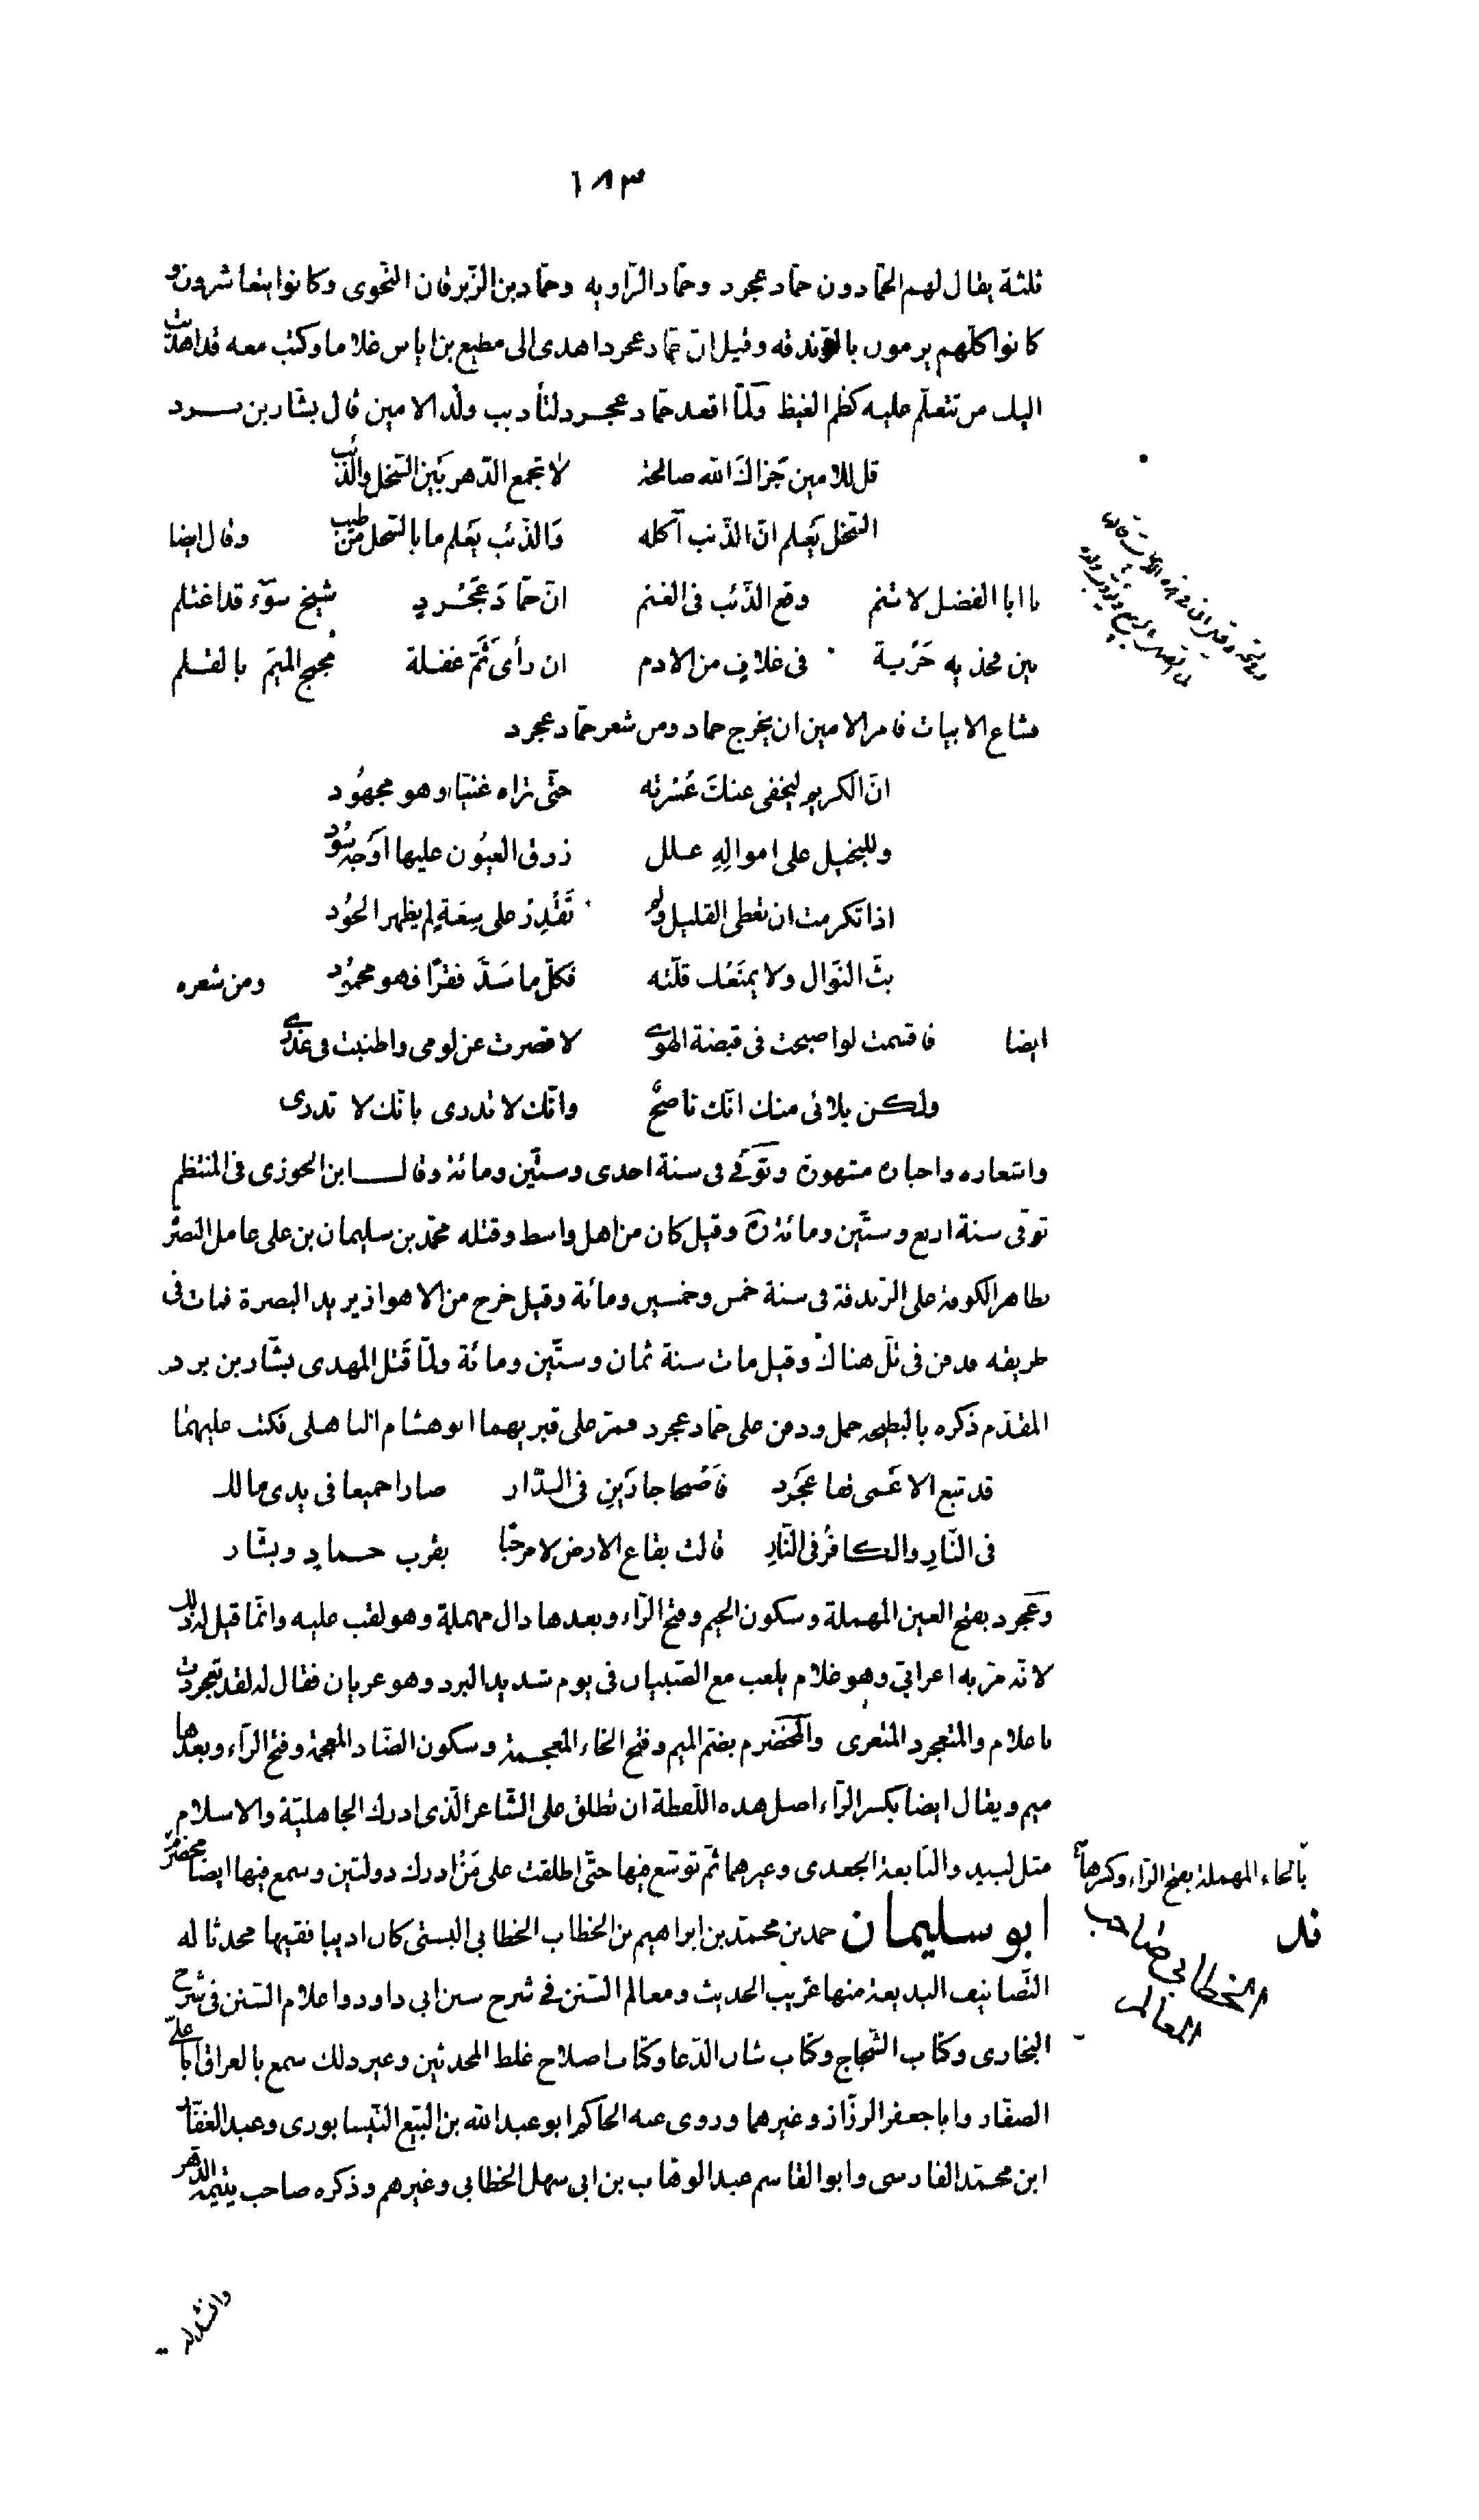 ١٨٣
ثلثة يقال لهم الحمّادون حمّاد عجرد وحمّاد الرّاويه وحمّاد بن الزّبرقان النّحوى وكانوا يتعاشرون و
كانوا كلّهم يرمون بالزّندقه وقيل انّ حمّاد عجرد اهدى الى مطيع بن اياس غلاما وكتب معه قد اهديت
اليك من تتعلّم عليه كظم الغيظ ولمّا اقعد حمّاد عجرد لتأديب ولد الامين قال بشّار بن برد
قل للامين جَزاكَ الله صالحة لا تجمع الدّهر بَين السّخل والذّئب
السّخل يَعلم انّ الذّئب آكله وَالذّئب يَعلم ما بالسّخل من طيب وقال ايضا
يا ابا الفضل لا تنم وقع الذّئب فى الغنم انّ حمّادَ عَجْرَدٍ شيخ سَوْء قد اغتلم
بين فخذيه حَرْبة فى غلافٍ من الادم ان رأى ثَمَّ غفلة مجمج الميمَ بالقلم
فشاع الابيات فامر الامين ان يخرج حماد ومن شعر حمّاد عجرد
انّ الكريم ليخفى عنكَ عُسْرته حتّى تراه غنيّا وهو مجهُود
وللبخيل على امواله عـلل زرق العيُون عليها اَوجه سُود
اذا تكرمت ان تعطى القليل ولم تَقْدِرْ على سِعَةٍ لم يظهر الجُود
بثّ النّوال ولا يمنَعْك قلّته فكلّ ما سَدَّ فقرًا فهو محمُود ومن شعره
ايضا فاقسمت لو اصبحت فى قبضة الهوى لاقصرت عن لومى واطنبت فى عذرى
ولكن بلائى منك انّك ناصحٌ وانّك لا تدرى بانّك لا تدرى
واشعاره واخباره مشهورة وتوفّى فى سنة احدى وستّين ومائة وقال ابن الجوزى فى المنتظم
توفّى سنة اربع وستّين ومائة وقيل كان من اهل واسط وقتله محمّد بن سليمان بن على عامل البصرة
بظاهر الكوفة على الزندقة فى سنة خمس وخمسين ومائة وقيل خرج من الاهواز يريد البصرة فمات فى
طريقه فدفن فى تلّ هناك وقيل مات سنة ثمان وستّين ومائة ولمّا قَتل المهدى بشّار بن برد
المقدّم ذكره بالبطيحه حمل ودفن على حمّاد عجرد فمرّ على قبريهما ابو هشام الباهلى فكتب عليهما
قد تبع الاعمى قفا عَجْرَد فَاَصْبحا جارَينِ فى الدّار صارا جميعا فى يدى مالك
فى النّارِ والكافرُ فى النّارِ قالت بقاع الارض لا مرحبًا بقرب حمادٍ وبشّار
وعَجرد بفتح العين المهملة وسكون الجيم وفتح الرّاء وبعدها دال مهملة وهو لقب عليه وانّما قيل له ذلك
لانّه مرّ به اعرابىّ وهو غلام يلعب مع الصّبيان فى يوم شديد البرد وهو عريان فقال له لقد تعجردت
يا غلام والمتعجرد المتعرى والمخضرم بضمّ الميم وفتح الخاء المعجمة وسكون الضّاد المعجمة وفتح الرّاء وبعدها
ميم ويقال ايضا بكسر الرّاء اصل هذه اللّفظة ان تطلق على الشّاعر الّذى ادرك الجاهليّة والاسلام
مثل لبيد والنّابغة الجعدى وغيرهما ثمّ توسّع فيها حتّى اطلقت على مَنْ ادرك دولتين وسمع فيها ايضا محضرم
بالحاء المهملة بفتح الرّاء وكسرها
ابو سليمان حمد بن محمّد بن ابراهيم بن الخطاب الخطابى البستى كان اديبا فقيها محدثا له
الخطابى صاحب
المعالم
التّصانيف البديعة منها غريب الحديث ومعالم السّنن فى شرح سنن ابى داود واعلام السّنن فى شرح
البخارى وكتاب الشّجاج وكتاب شان الدّعا وكتاب اصلاح غلط المحدثين وغير ذلك سمع بالعراق ابا على
الصفّار وابا جعفر الرزّاز وغيرهما وروى عنه الحاكم ابو عبد الله بن البيّع النّيسابورى وعبد الغفّار
ابن محمّد الفارسى وابو القاسم عبد الوهّاب بن ابى سهل الخطابى وغيرهم وذكره صاحب يتيمة الدّهر
وانشد له